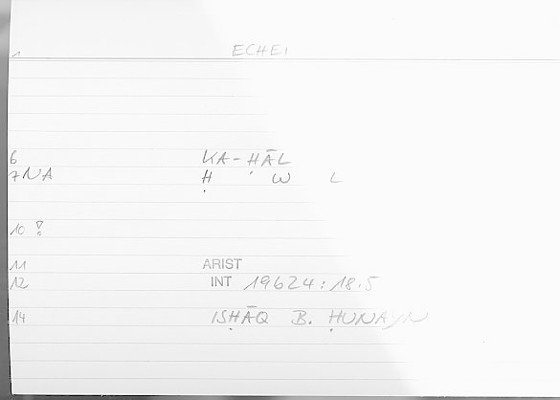 1 ECHEI
6 KA-ḤĀL
7 NA Ḥ W L
10 !
11 ARIST
12 INT 19624:18.5
14 ISḤĀQ B. ḤUNAYN